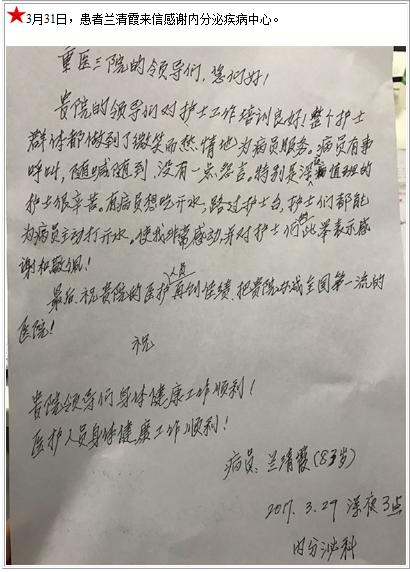 ★3月31日，患者兰清霞来信感谢内分泌疾病中心。
重医三院的领导们，您们好！
贵院的领导们对护士工作培训良好！整个护士
群体都做到了微笑而热情地为病员服务。病员有事
呼叫，随喊随到，没有一点怨言。特别是深夜值班的
护士很辛苦。有病员想吃开水，路过护士台，护士们都能
为病员主动打开水，使我非常感动，并对护士们的此举表示感
谢和敬佩！
最后，祝贵院的医护人员再创佳绩，把贵院办成全国第一流的
医院！
祝
贵院领导们身体健康工作顺利！
医护人员身体健康工作顺利！
病员：兰清霞（83岁）
2017.3.29 深夜3点
内分泌科